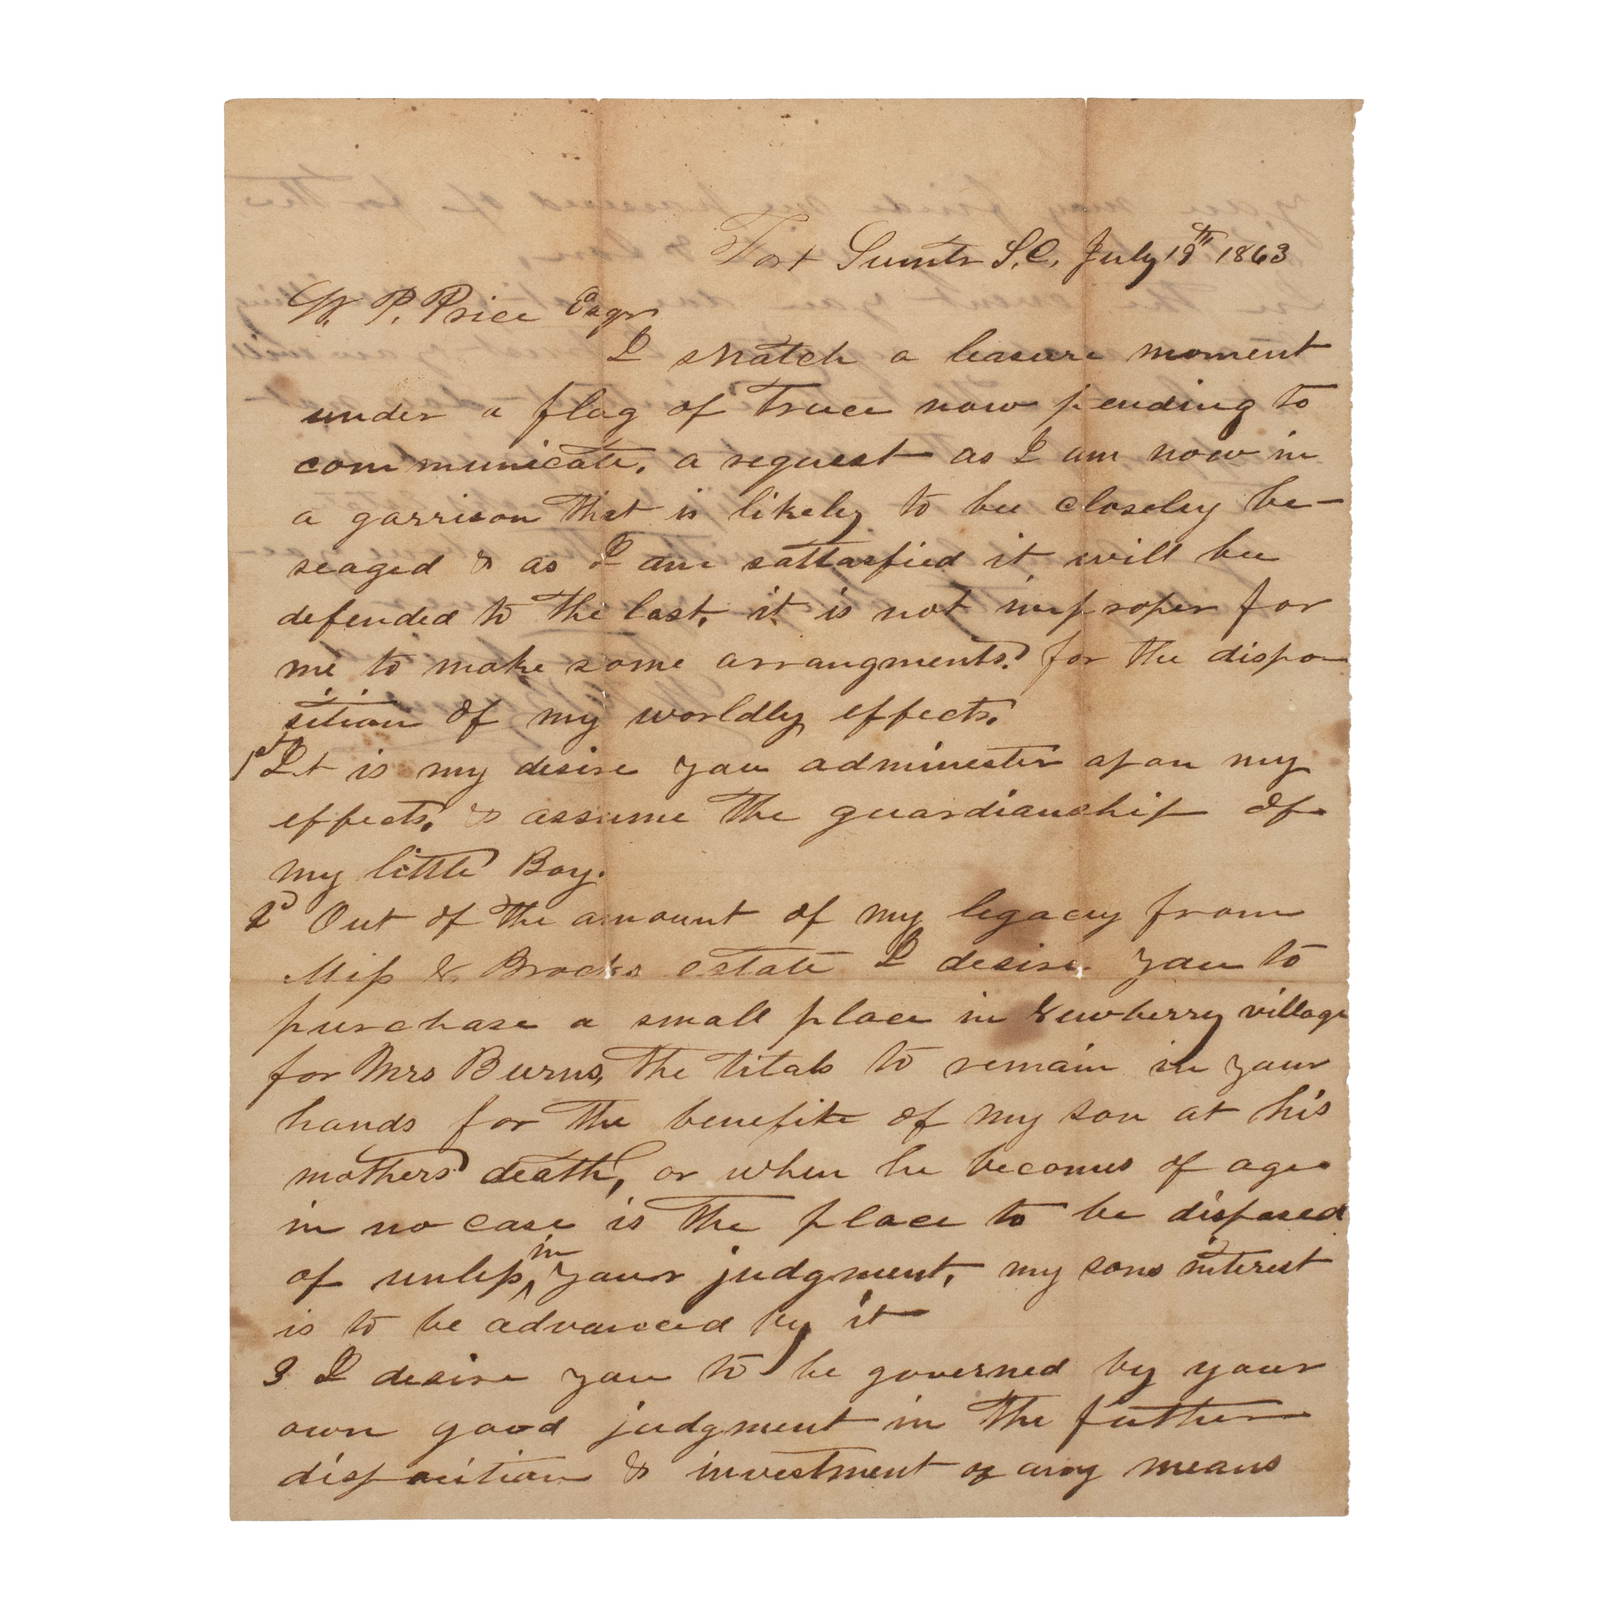 Fort Sumtr S.C. July 19th 1863
W. P. Price Esqr
I snatch a leasure moment
under a flag of truce now pending to
communicate, a request as I am now in
a garrison that is likely to bee closeley be-
seaged & as I am sattasfied it will bee
defended to the last, it is not improper for
me to make some arrangments for the dispo
sition of my worldly effects.
1st It is my desire you adminester apon my
effects, & assume the guardianship of
my little Boy.
2d Out of the amount of my legacy from
Miss Brocks estate I desire you to
purchase a small place in Newberry village
for Mrs Burns, the titals to remain in your
hands for the benefite of my son at his
mothers death, or when he becomes of age
in no case is the place to be disposed
of unless in your judgment, my sons interest
is to be advanced by it
3 I desire you to be governed by your
own good judgment in the futher
disposition & investment of any means